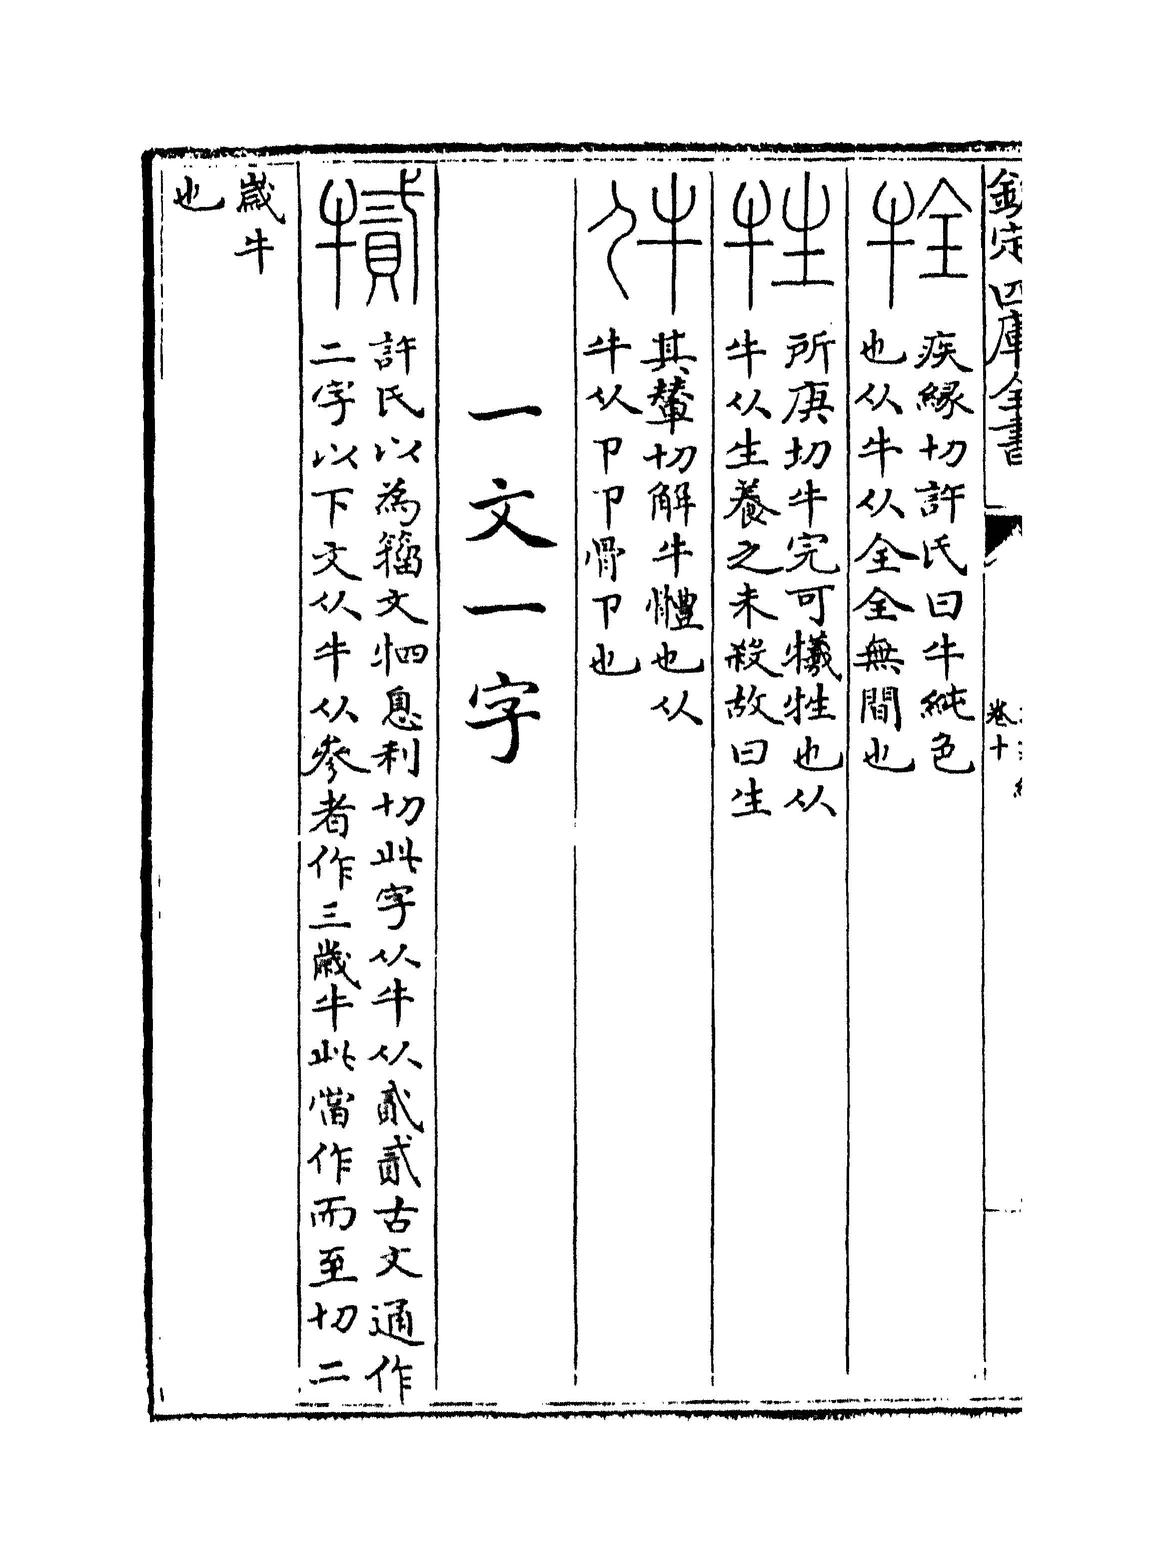 欽定四庫全書
卷十
牷
疾縁切許氏曰牛純色
也从牛从全全無間也
牲
所庚切牛完可犧牲也从
牛从生養之未殺故曰生
其輦切解牛體也从
牛从卩卩骨卩也
一文一字
許氏以為籀文牭息利切此字从牛从貳貳古文通作
二字以下文从牛从參者作三歲牛此當作而至切二
歲牛
也